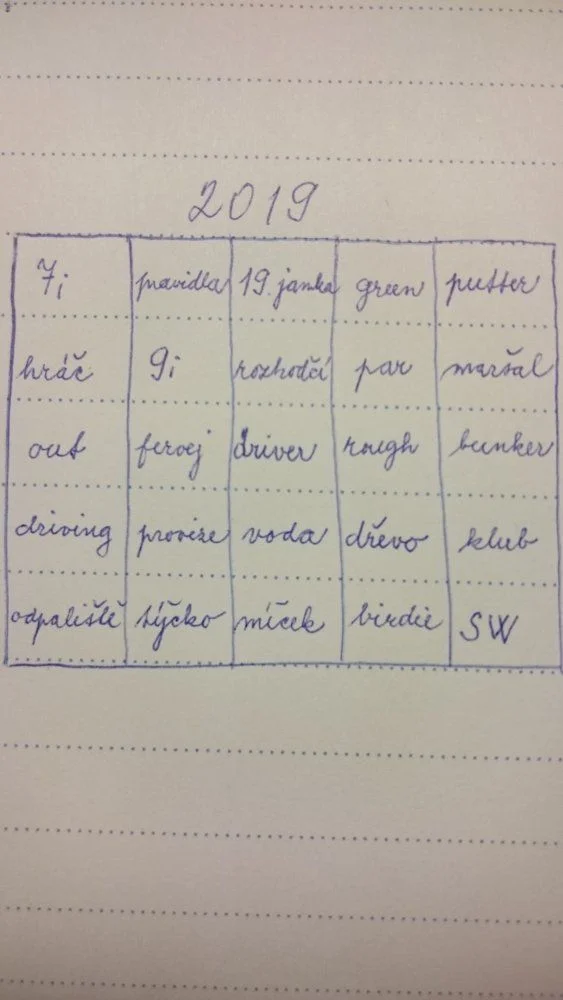 2019
7i pravidla 19. jamka green putter
hráč 9i rozhodčí par maršál
out fervej driver rough bunker
driving provize voda dřevo klub
odpaliště týčko míček birdie SW